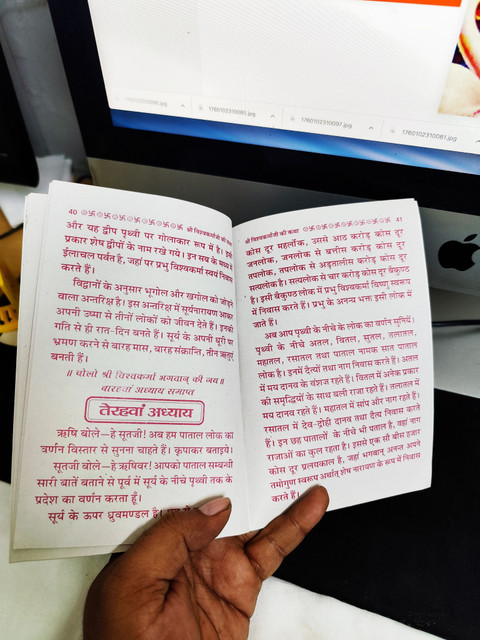 1760102310085.jpg
1760102310097.jpg
1760102310081.jpg
40
श्री विश्वकर्मा जी की कथा
और यह द्वीप पृथ्वी पर गोलाकार रूप में है। इसी
प्रकार शेष द्वीपों के नाम रखे गये। इन सब के मध्य में
ईलाचल पर्वत है, जहां पर प्रभु विश्वकर्मा स्वयं निवास
करते हैं।
विद्वानों के अनुसार भूगोल और खगोल को जोड़ने
वाला अन्तरिक्ष है। इस अन्तरिक्ष में सूर्यनारायण आकर
अपनी उष्मा से तीनों लोकों को जीवन देते हैं। इनकी
गति से ही रात-दिन बनते हैं। सूर्य के अपनी धुरी पर
भ्रमण करने से बारह मास, बारह संक्रान्ति, तीन ऋतुएं
बनती हैं।
॥ बोलो श्री विश्वकर्मा भगवान् की जय॥
बारहवां अध्याय समाप्त
तेरहवां अध्याय
ऋषि बोले—हे सूतजी! अब हम पाताल लोक का
वर्णन विस्तार से सुनना चाहते हैं। कृपाकर बताइये।
सूतजी बोले—हे ऋषिवर! आपको पाताल सम्बन्धी
सारी बातें बताने से पूर्व में सूर्य के नीचे पृथ्वी तक के
प्रदेश का वर्णन करता हूँ।
सूर्य के ऊपर ध्रुवमण्डल है।
श्री विश्वकर्मा जी की कथा
41
कोस दूर महर्लोक, उससे आठ करोड़ कोस दूर
जनलोक, जनलोक से बत्तीस करोड़ कोस दूर
तपलोक, तपलोक से अड़तालीस करोड़ कोस दूर
सत्यलोक है। सत्यलोक से चार करोड़ कोस दूर बैकुण्ठ
है। इसी बैकुण्ठ लोक में प्रभु विश्वकर्मा विष्णु स्वरूप
में निवास करते हैं। प्रभु के अनन्य भक्त इसी लोक में
जाते हैं।
अब आप पृथ्वी के नीचे के लोक का वर्णन सुनिये।
पृथ्वी के नीचे अतल, वितल, सुतल, तलातल,
महातल, रसातल तथा पाताल नामक सात पाताल
लोक है। इनमें दैत्यों तथा नाग निवास करते हैं। अतल
में मय दानव के वंशज रहते हैं। वितल में अनेक प्रकार
की समृद्धियों के साथ बली राजा रहते हैं। तलातल में
मय दानव रहते हैं। महातल में सांप और नाग रहते हैं।
रसातल में देव-द्रोही दानव तथा दैत्य निवास करते
हैं। इन छह पातालों के नीचे भी पताल है, वहां नाग
राजाओं का कुल रहता है। इससे एक सौ बीस हजार
कोस दूर प्रलयकाल है, जहां भगवान् अनन्त अपने
तमोगुण स्वरूप अर्थात् शेष नारायण के रूप में निवास
करते हैं।